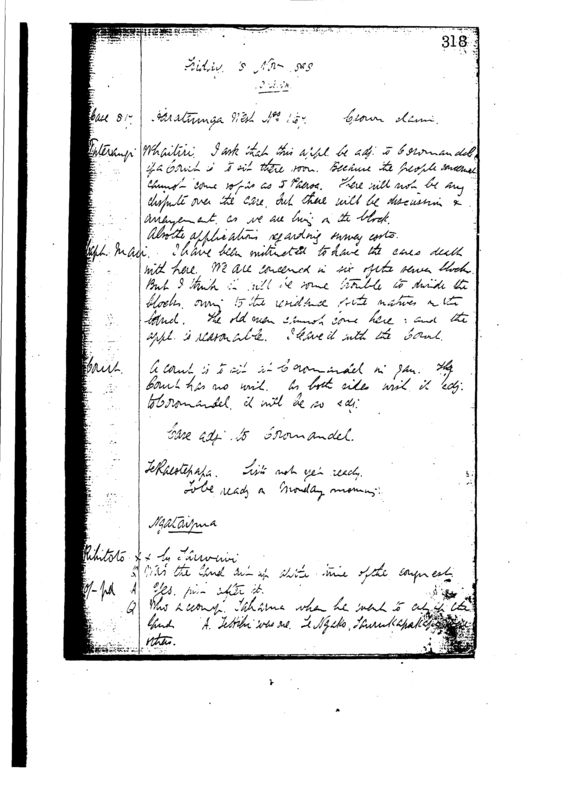 318
Friday
Case 517 Harataunga West Nos Crown claim.
Whaitiri. I ask that this appl be adj. to Coromandel,
if a Court is to sit there soon. Because the people concerned
cannot come so far as to Paeroa. There will not be any
dispute over the case, but there will be discussion &
arrangement, as we are living on the block.
Also the application regarding survey costs.
I have been instructed to have the cases dealt
with here. We are concerned in six of the seven blocks.
But I think it will be some trouble to divide the
blocks, owing to the residence of the natives on the
land. The old men cannot come here, and the
appl. is reasonable. I leave it with the Court.
Court. A court is to sit in Coromandel in Jan. The
Court has no wish. As both sides wish it adj.
to Coromandel, it will be so adj.
Case adj. to Coromandel.
List not yet ready.
To be ready on Monday morning.
Ngataipua
Rihitoto xx by
Q Was the land cut up at the time of the conquest
A Yes. just after it.
Q Who accomp. Taharua when he went to cut up the
land A. was one. Te Ngako,
others.